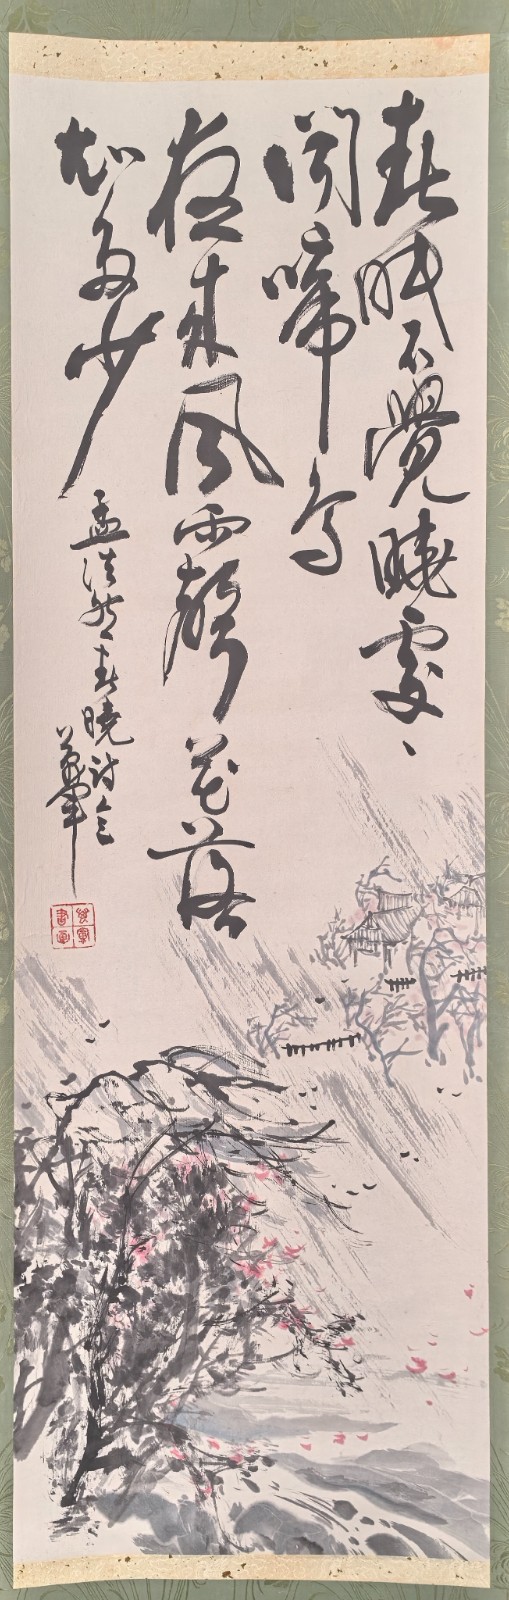 春眠不覺曉處、
聞啼鳥
夜来風雨聲花落
知多少
孟浩然春曉詩意